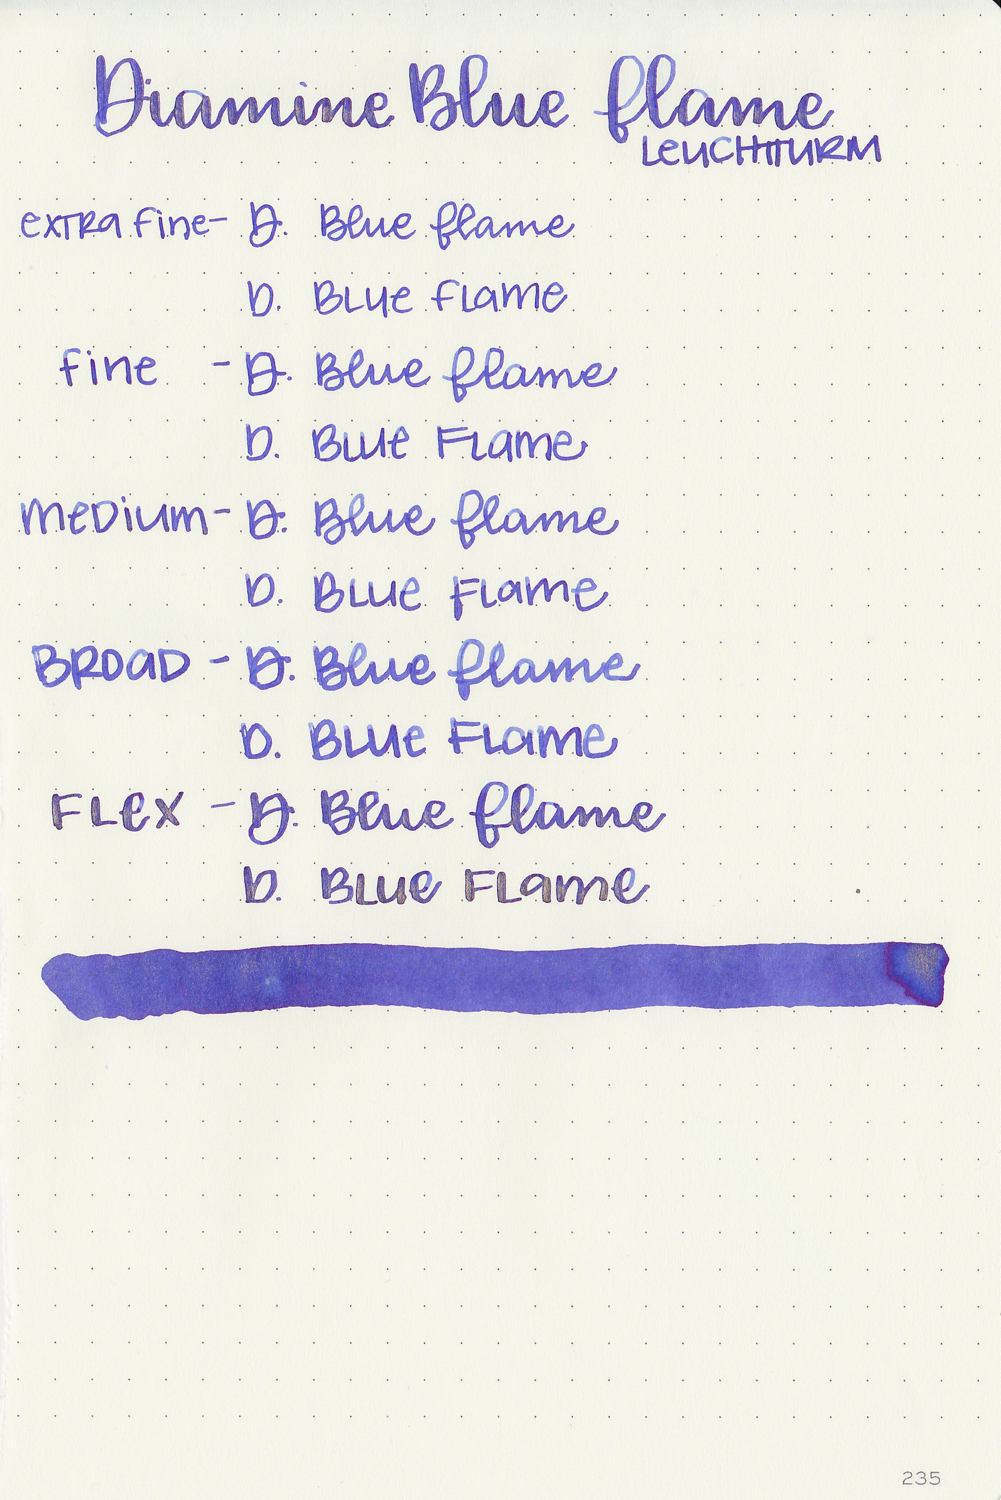 Diamine Blue flame
LEUCHTTURM
extra fine - D. Blue flame
D. BLUE FLAME
fine - D. Blue flame
D. BLUE FLAME
MEDIUM - D. Blue flame
D. BLUE FLAME
BROAD - D. Blue flame
D. BLUE FLAME
FLEX - D. Blue flame
D. BLUE FLAME
235